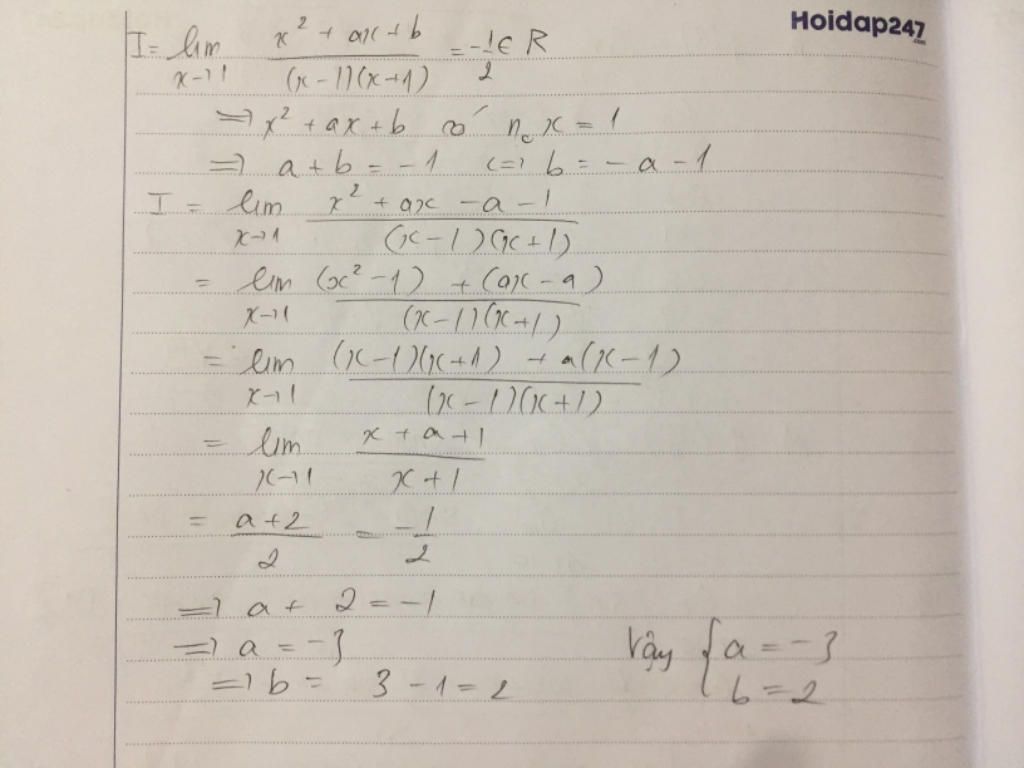 Hoidap247.com
I = lim x→1 (x² + ax + b)/((x-1)(x+1)) = -1/2 ∈ R
=> x² + ax + b có n₀ x = 1
=> a + b = -1 <=> b = -a - 1
I = lim x→1 (x² + ax - a - 1)/((x-1)(x+1))
= lim x→1 ((x² - 1) + (ax - a))/((x-1)(x+1))
= lim x→1 ((x-1)(x+1) + a(x-1))/((x-1)(x+1))
= lim x→1 (x + a + 1)/(x + 1)
= (a + 2)/2 = -1/2
=> a + 2 = -1
=> a = -3
=> b = 3 - 1 = 2
Vậy { a = -3
b = 2